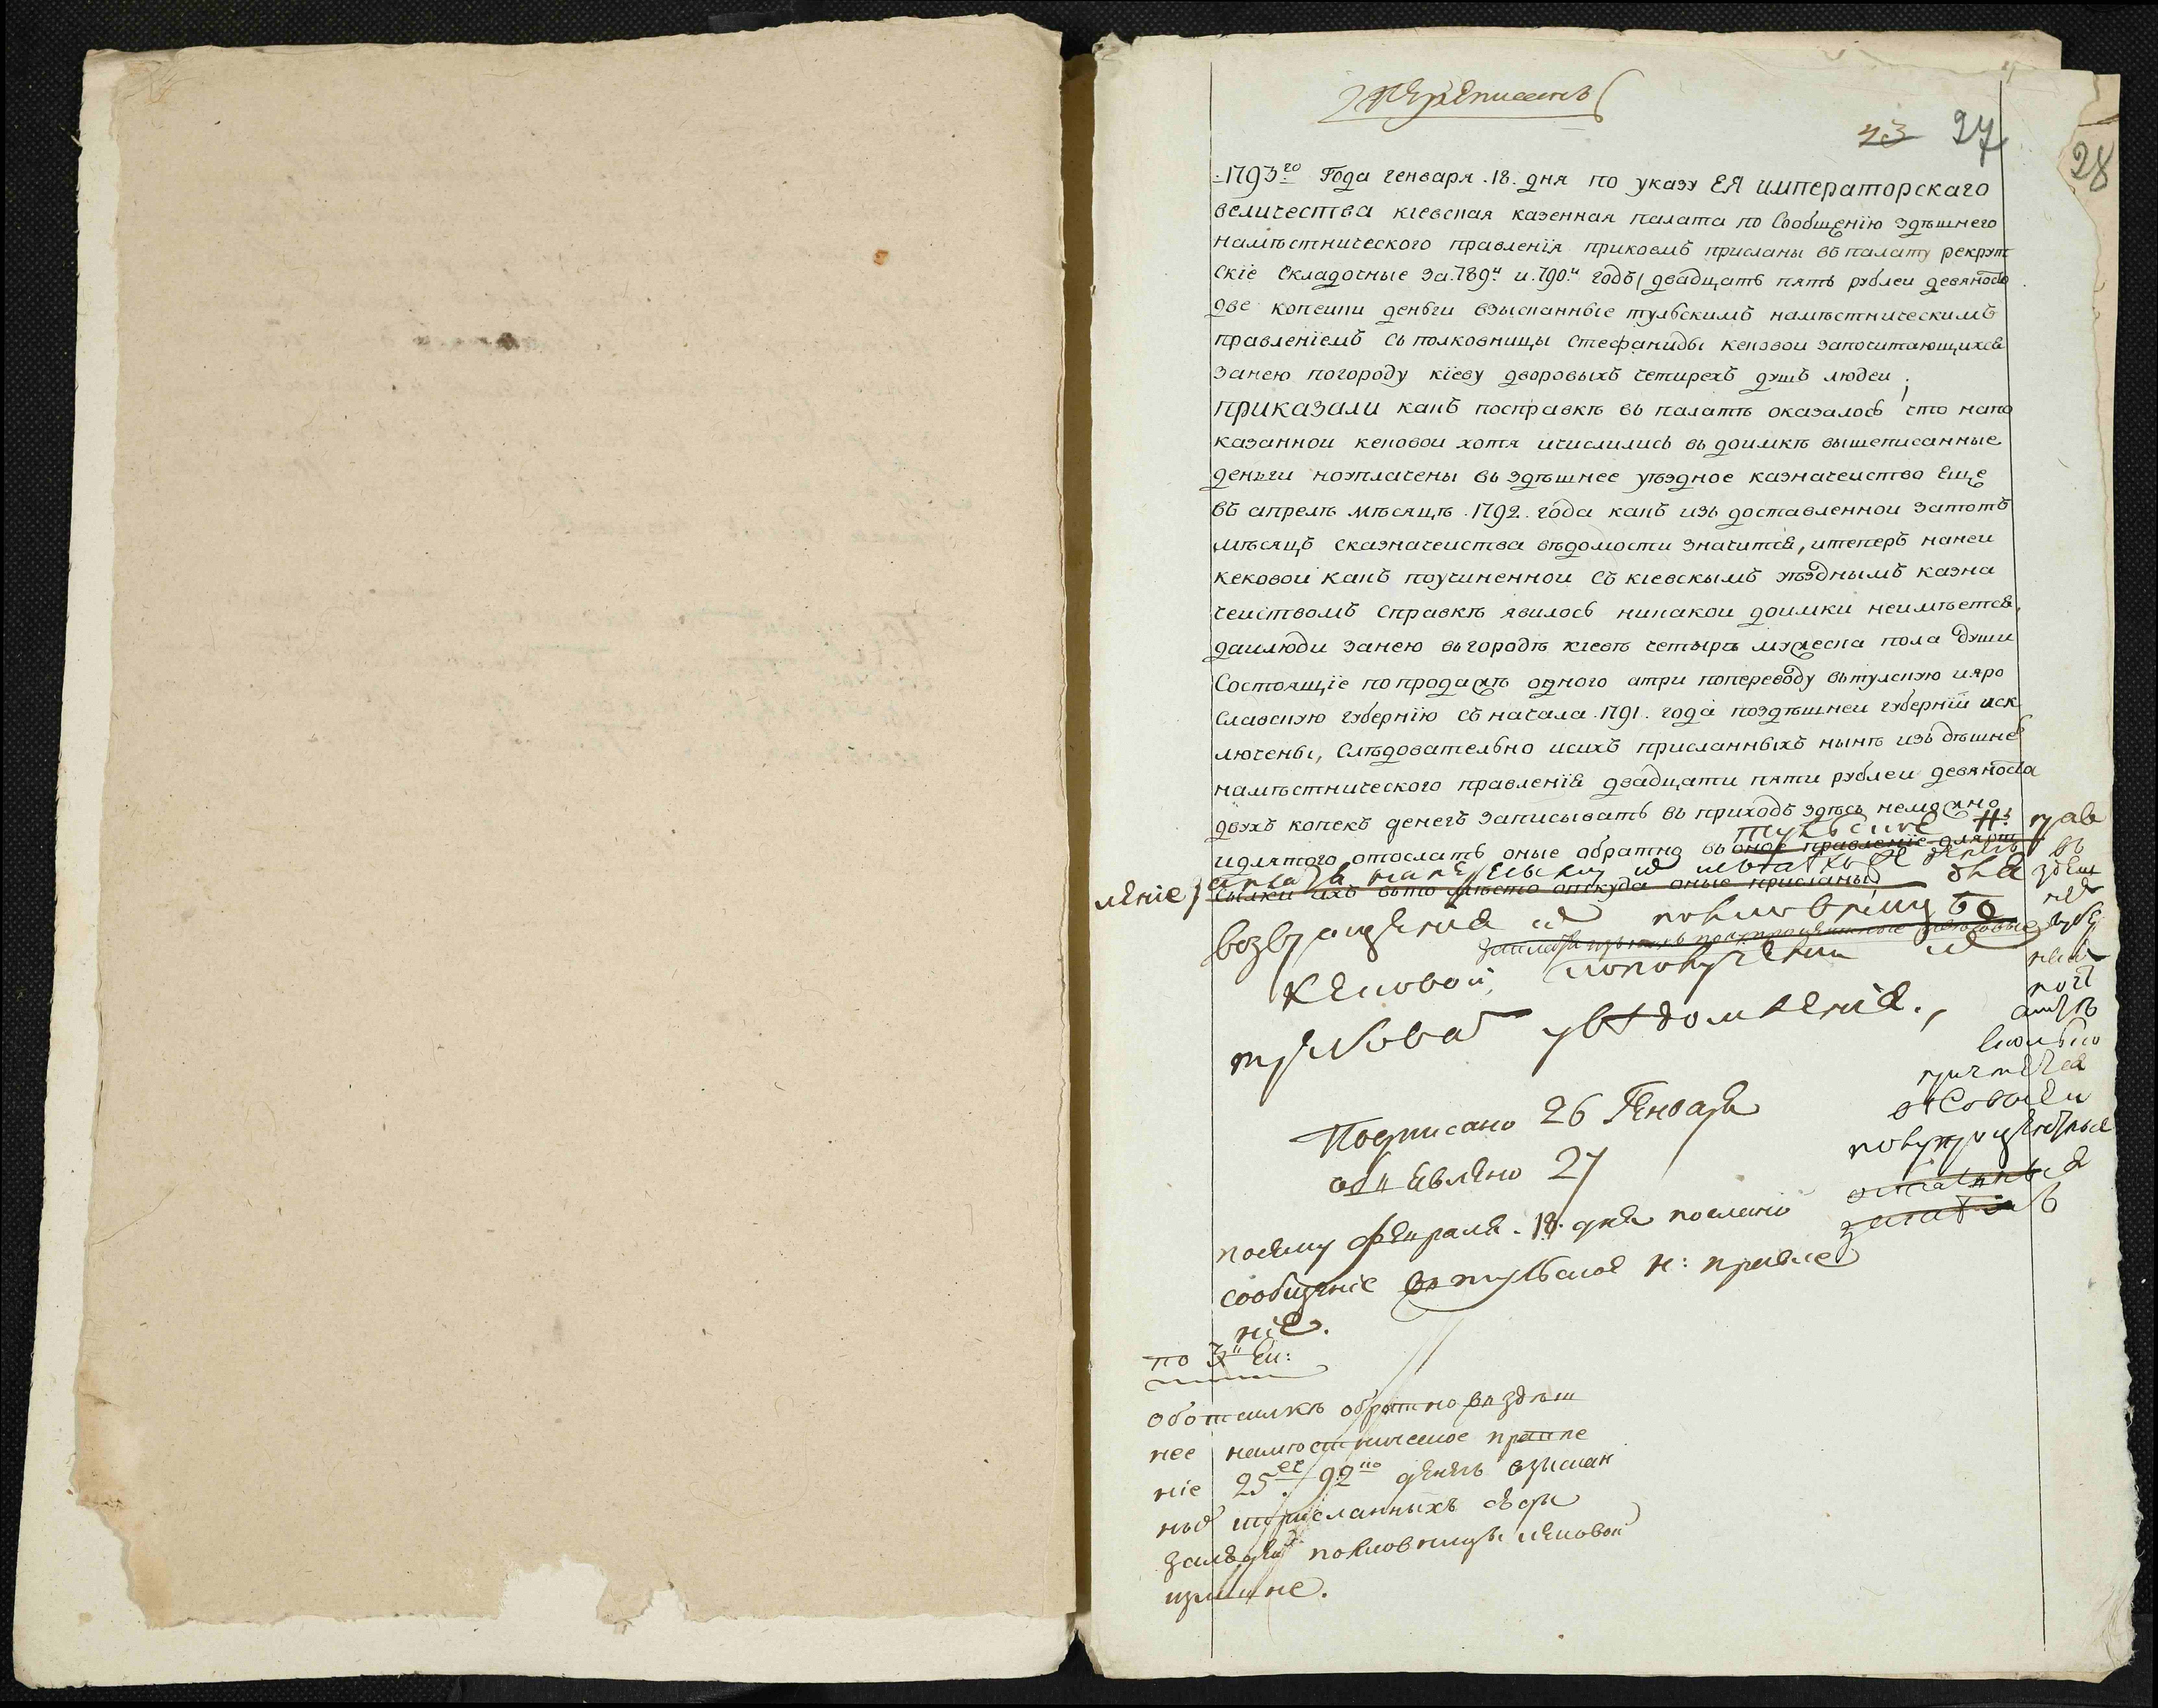 Переписанъ
23 27
28
1793го Года генваря .18. дня по указу ЕЯ императорскаго
величества кіевская казенная палата по Сообщенію здѣшнего
намѣстнического правленія прикоемъ присланы въ палату рекрут
скіе Складочные за .789й и .790й годъ двадцать пять рублеи девяносто
две копеики деньги взысканные тульскимъ намѣстническимъ
правленіемъ съ полковницы Стефаниды кековои започитающихся
занею погороду кіеву дворовыхъ четирехъ душъ людеи;
приказали какъ посправкѣ въ палатѣ оказалось что напо
казаннои кековои хотя ичислились въ доимкѣ вышеписанные
деньги ноуплачены въ здѣшнее уѣздное казначеиство Еще
въ апрелѣ мѣсяцѣ .1792. года какъ изъ доставленнои затотъ
мѣсяцъ Сказначеиства вѣдомости значится, итеперъ наней
кековои какъ поучиненнои Съ кіевскымъ уѣзднымъ казна
чеиствомъ Справкѣ явилось никакои доимки неимѣется,
даилюди занею въгородѣ кіевѣ четырѣ мужеска пола души
Состоящіе попродажѣ одного атри попереводу вътулскую ияро
Славскую губернію Съ начала .1791. года поздѣшнеи губерніи иск
лючены, Слѣдовательно исихъ присланныхъ нынѣ изъ дѣшнего
намѣстнического правленія двадцати пяти рублеи девяноста
двухъ копекъ денегъ записывать въ приходъ здѣсь неможно
идлятого отослать оные обратно въ оное правленіе дляпт
тульское н: прав
леніе
Сылки ихъ вьто мѣсто откуда оные присланы для
возвращенія полковницѣ
Кековой, пополученіи
требовать увѣдомленія.
въ
здѣш
ней
Подписано 26 Генваря
объ Явлено 27
поему февраля .18. дня послано
сообщеніе въ тульское н: правле
ніе.
по Эк:
оботсилкѣ обратно въ здѣш
нее намѣстническое правле
ніе 25 92 денегъ взискан
ныхъ иприсланныхъ
полковницы кековой
излишне.